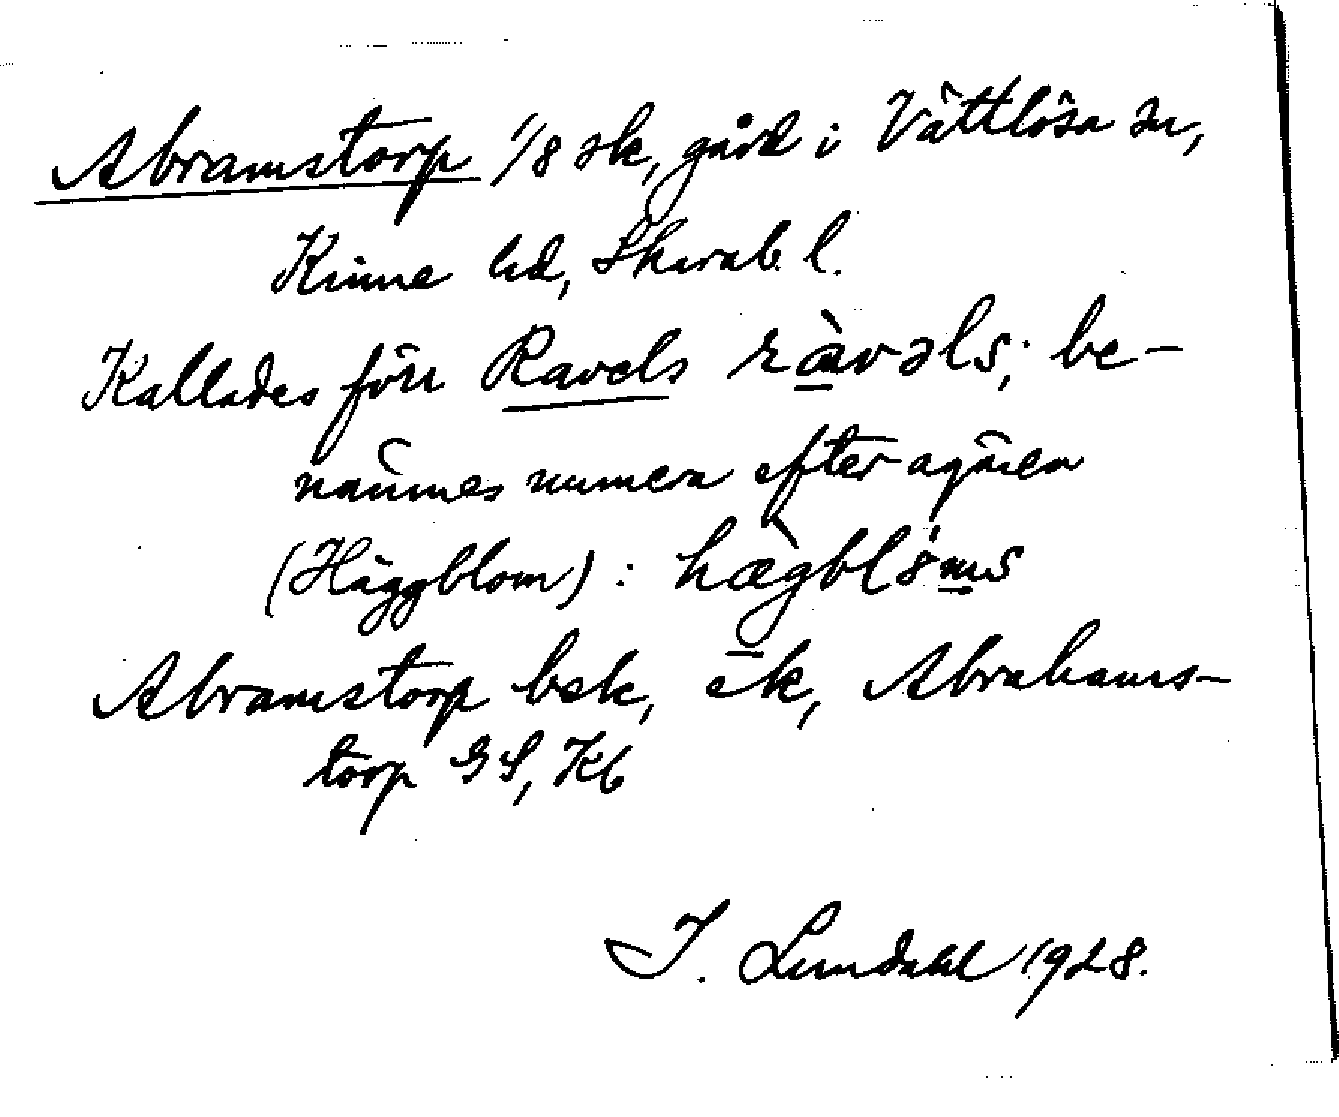 Abramstorp 1/8 sk, gård i Vättlösa sn,
Kinne hd, Skarab. l.
Kallades förr Ravels ràvəls; be-
nämnes numera efter ägaren
(Häggblom): hægbl
Abramstorp bek, ek, Abrahams-
torp GS, Kb
I. Lundahl 1928.